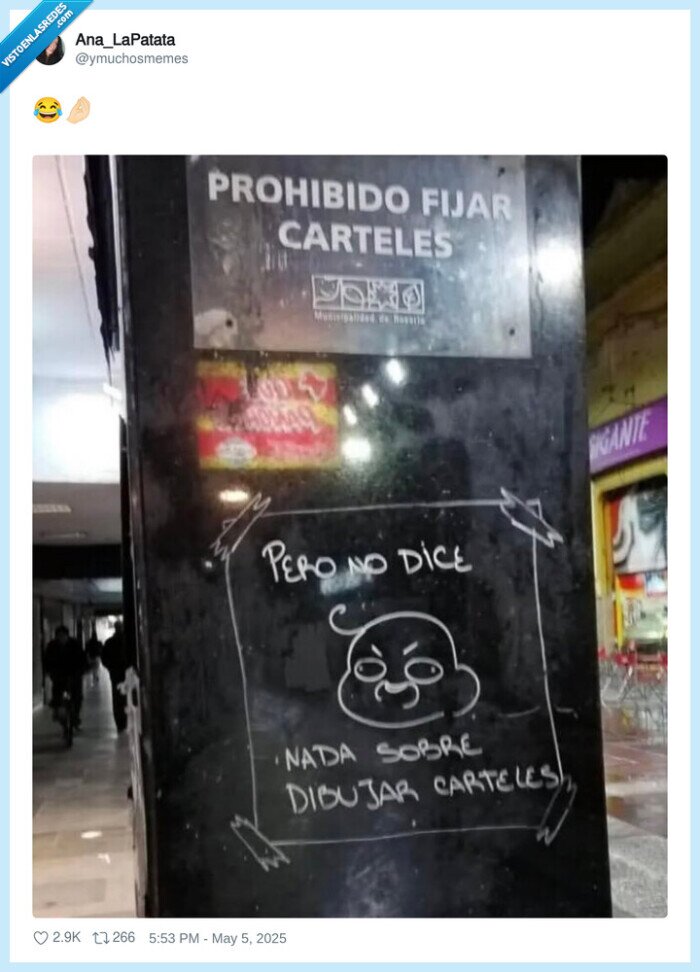 VISTOENLASREDES
.com
Ana_LaPatata
@ymuchosmemes
😂🤌🏻
PROHIBIDO FIJAR
CARTELES
Municipalidad de Rosario
PERO NO DICE
NADA SOBRE
DIBUJAR CARTELES
GIGANTE
2.9K 266 5:53 PM - May 5, 2025